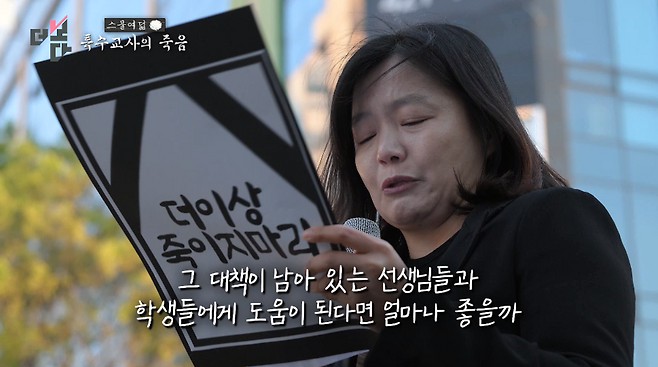 더 보다
스물여덟
특수교사의 죽음
더이상
죽이지마라
그 대책이 남아 있는 선생님들과
학생들에게 도움이 된다면 얼마나 좋을까